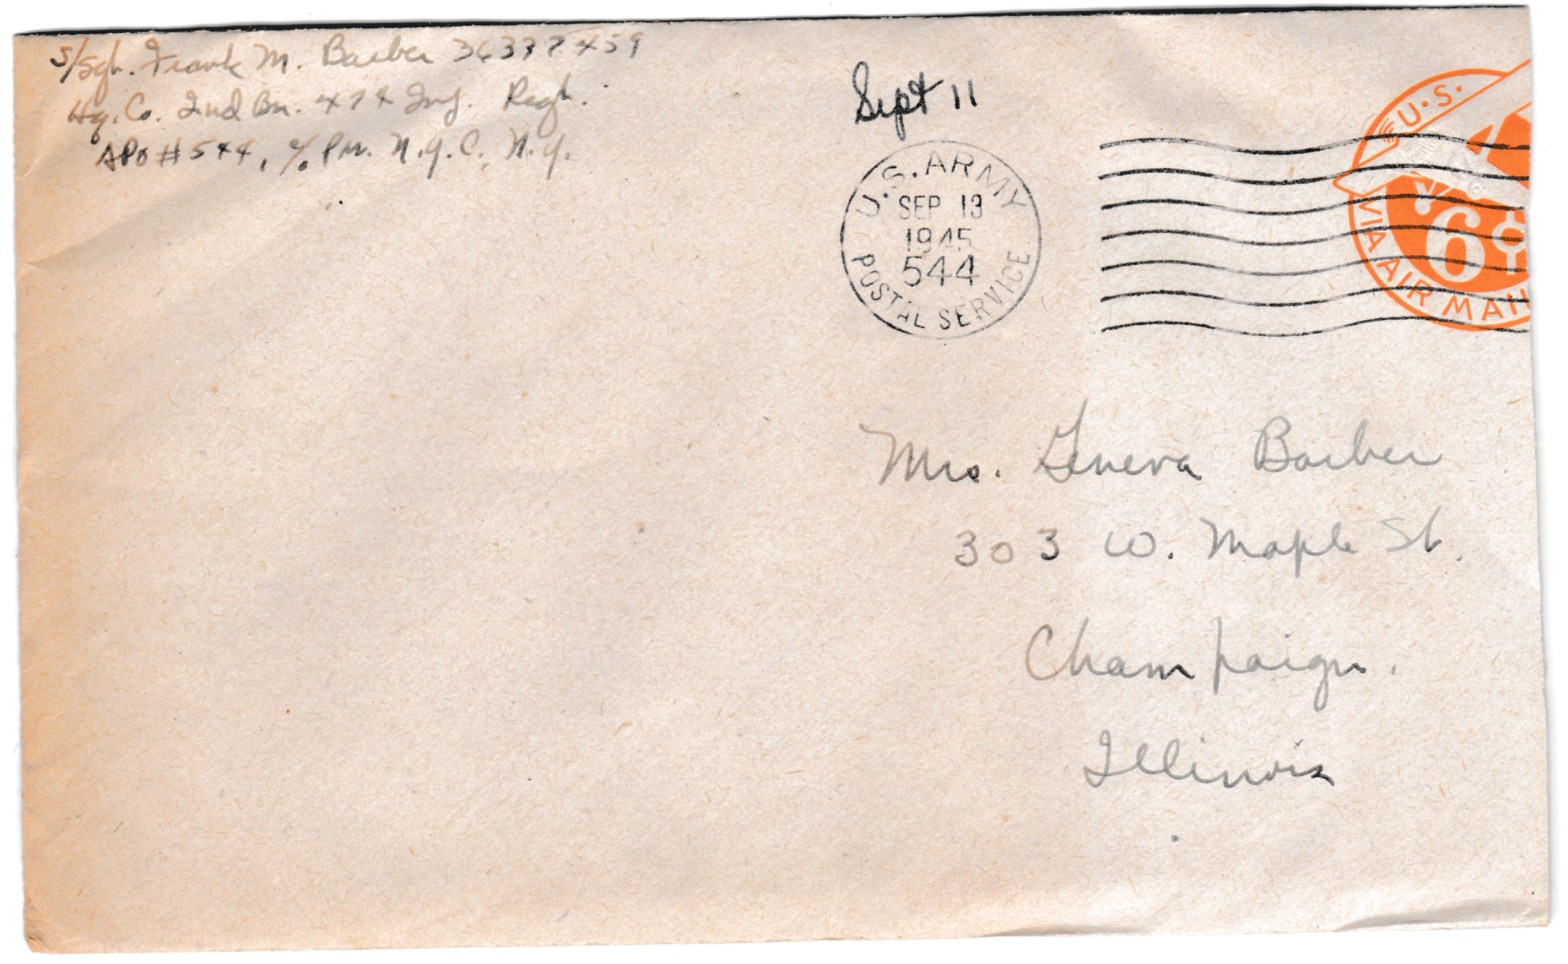 S/Sgt. Frank M. Barber 36337459
Hq. Co. 2nd Bn. 474 Inf. Regt.
APO #544, c/o PM. N.Y.C. N.Y.
Sept 11
U.S. ARMY
SEP 13
1945
544
POSTAL SERVICE
U.S.
6¢
VIA AIR MAIL
Mrs. Geneva Barber
303 W. Maple St.
Champaign.
Illinois